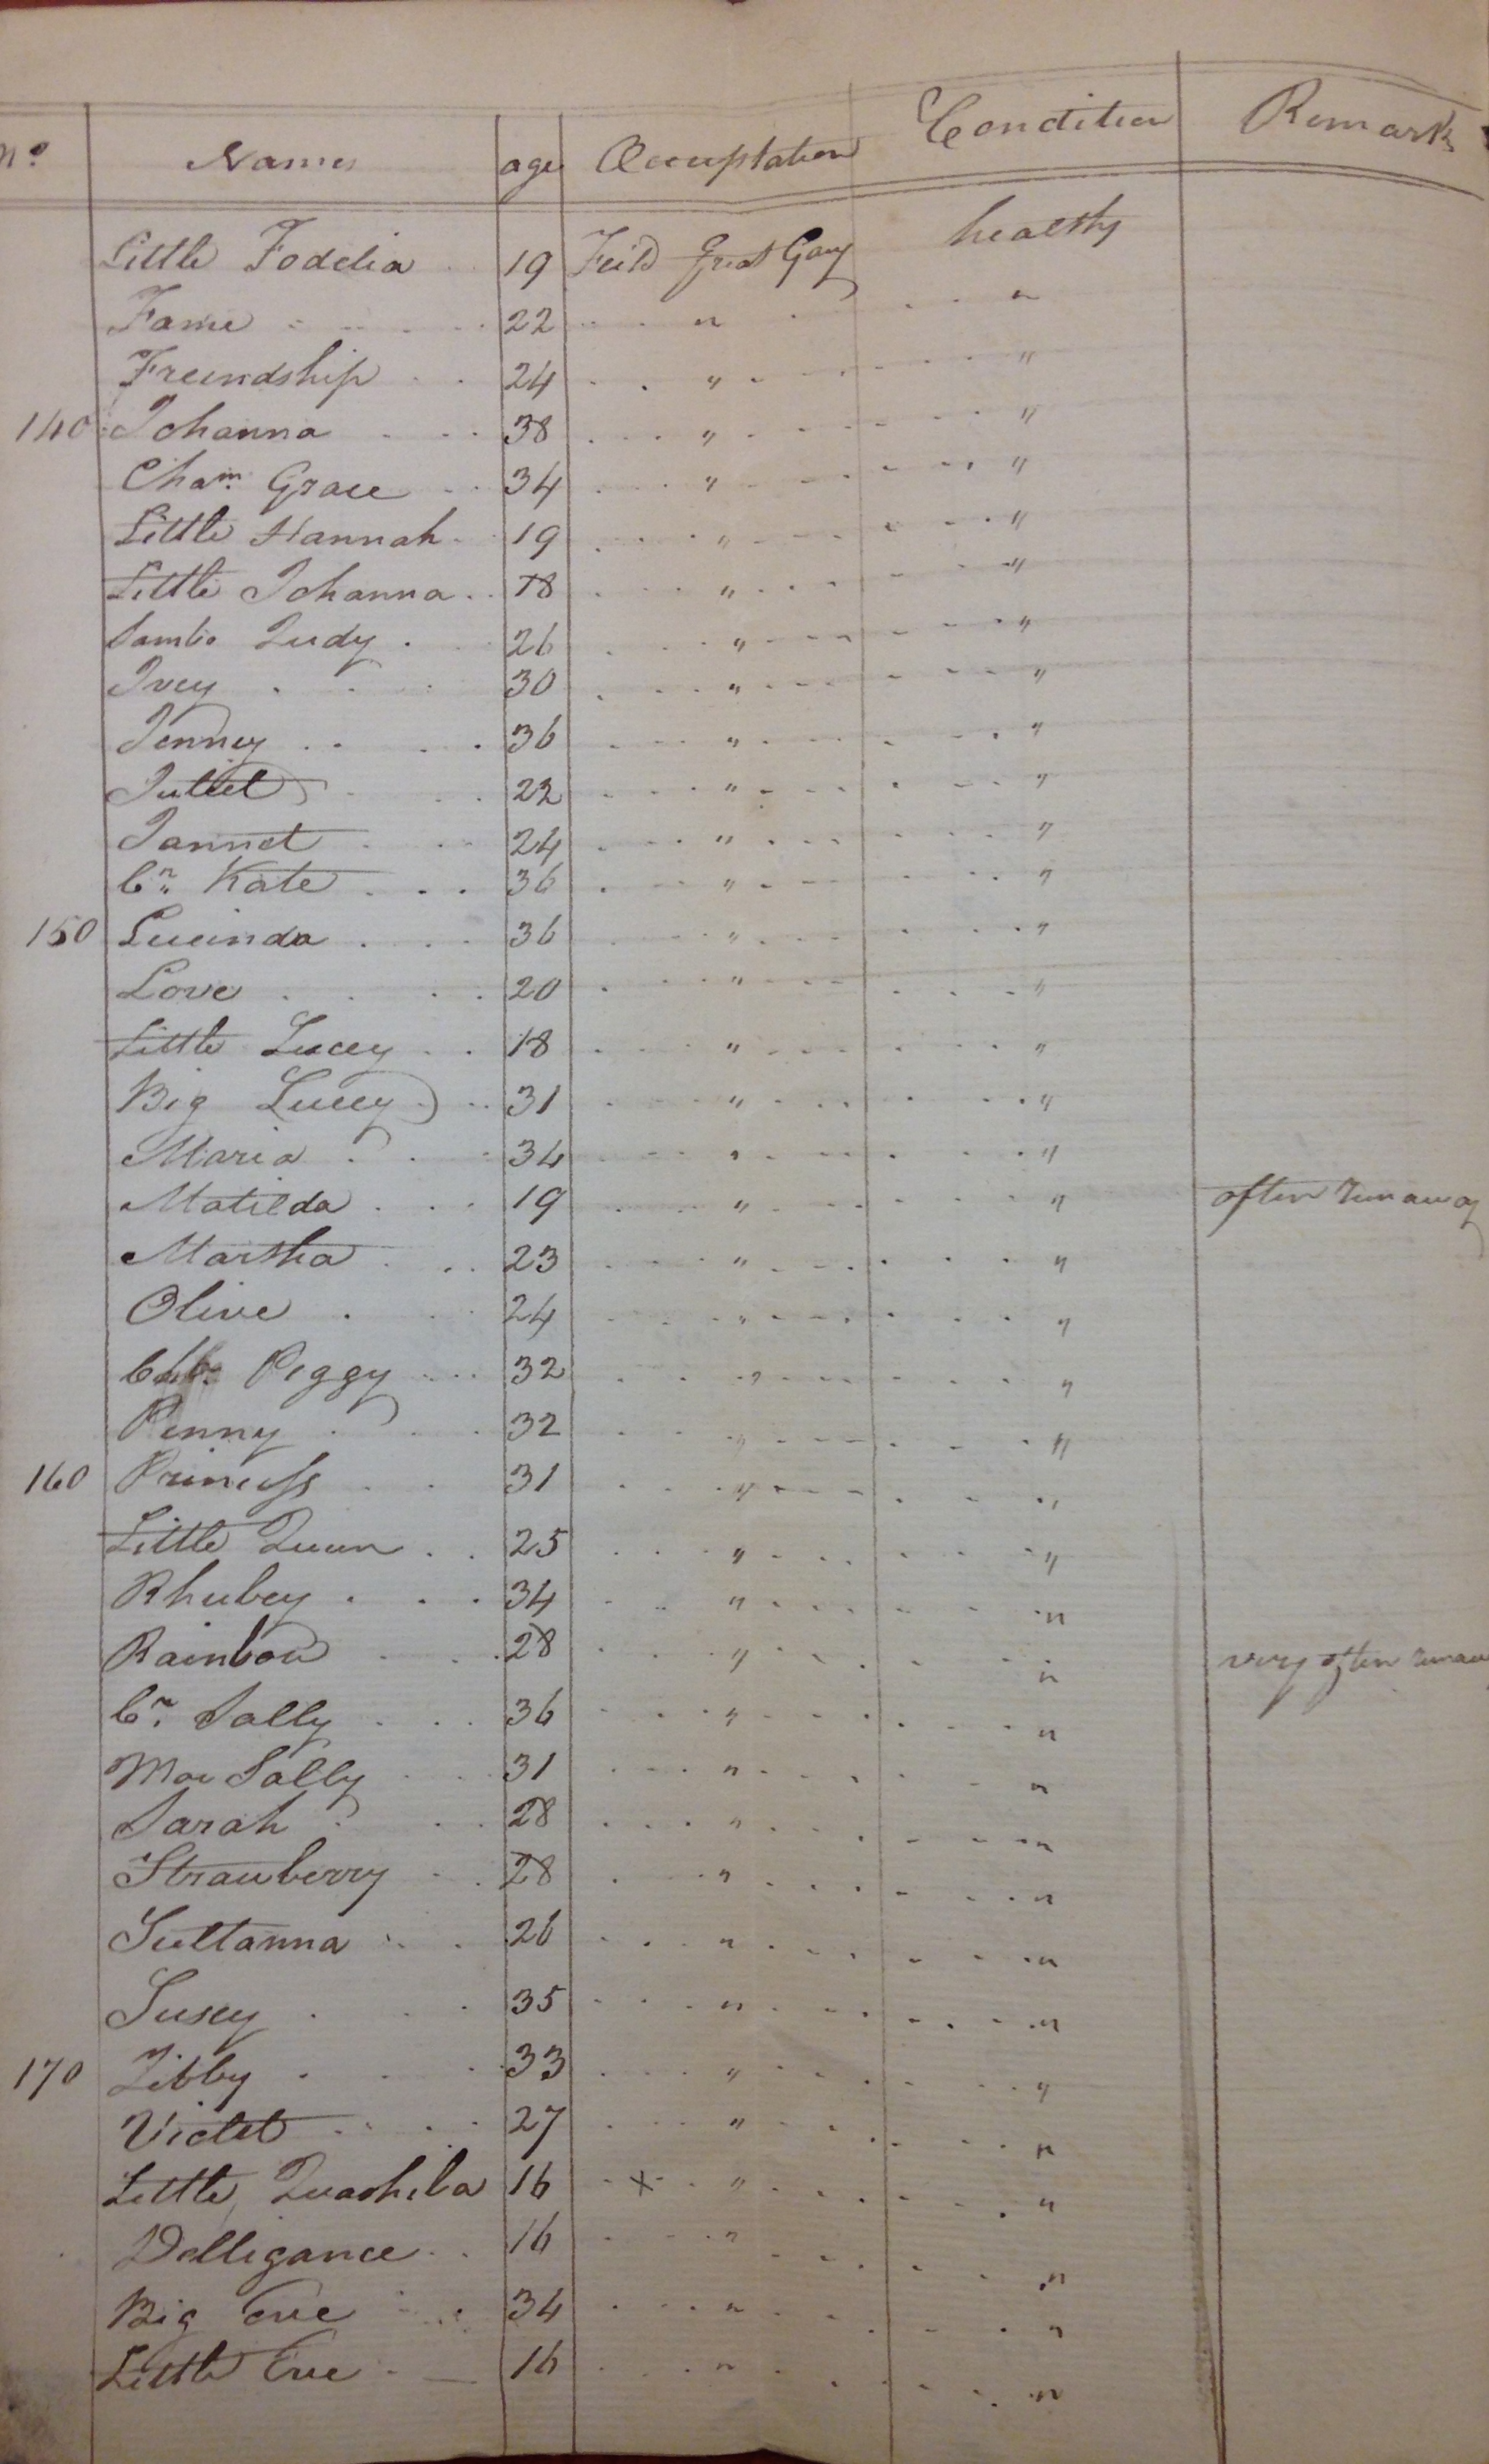 No. Names age Occupation Condition Remarks
Little Fodelia 19 Feild Great Gang healthy
Fame 22 " "
Freindship 24 " "
140 Johanna 38 " "
Cham. Grace 34 " "
Little Hannah 19 " "
Little Johanna 18 " "
Sambo Judy 26 " "
Ivey 30 " "
Jenney 36 " "
Juliet 22 " "
Jannet 24 " "
Cr. Kate 36 " "
150 Lucinda 36 " "
Love 20 " "
Little Lucey 18 " "
Big Lucey 31 " "
Maria 34 " "
Matilda 19 " " often runaway
Martha 23 " "
Olive 24 " "
Peggy 32 " "
Penny 32 " "
160 Princess 31 " "
Little Queen 25 " "
Rhubey 34 " "
Rainbow 28 " " very often runaw
Cr. Sally 36 " "
Moe Sally 31 " "
Sarah 28 " "
Strawberry 28 " "
Sultanna 26 " "
Susey 35 " "
170 Tibby 33 " "
Violet 27 " "
Little Quasheba 16 x " "
Delligance 16 " "
Big Eve 34 " "
Little Eve 16 " "